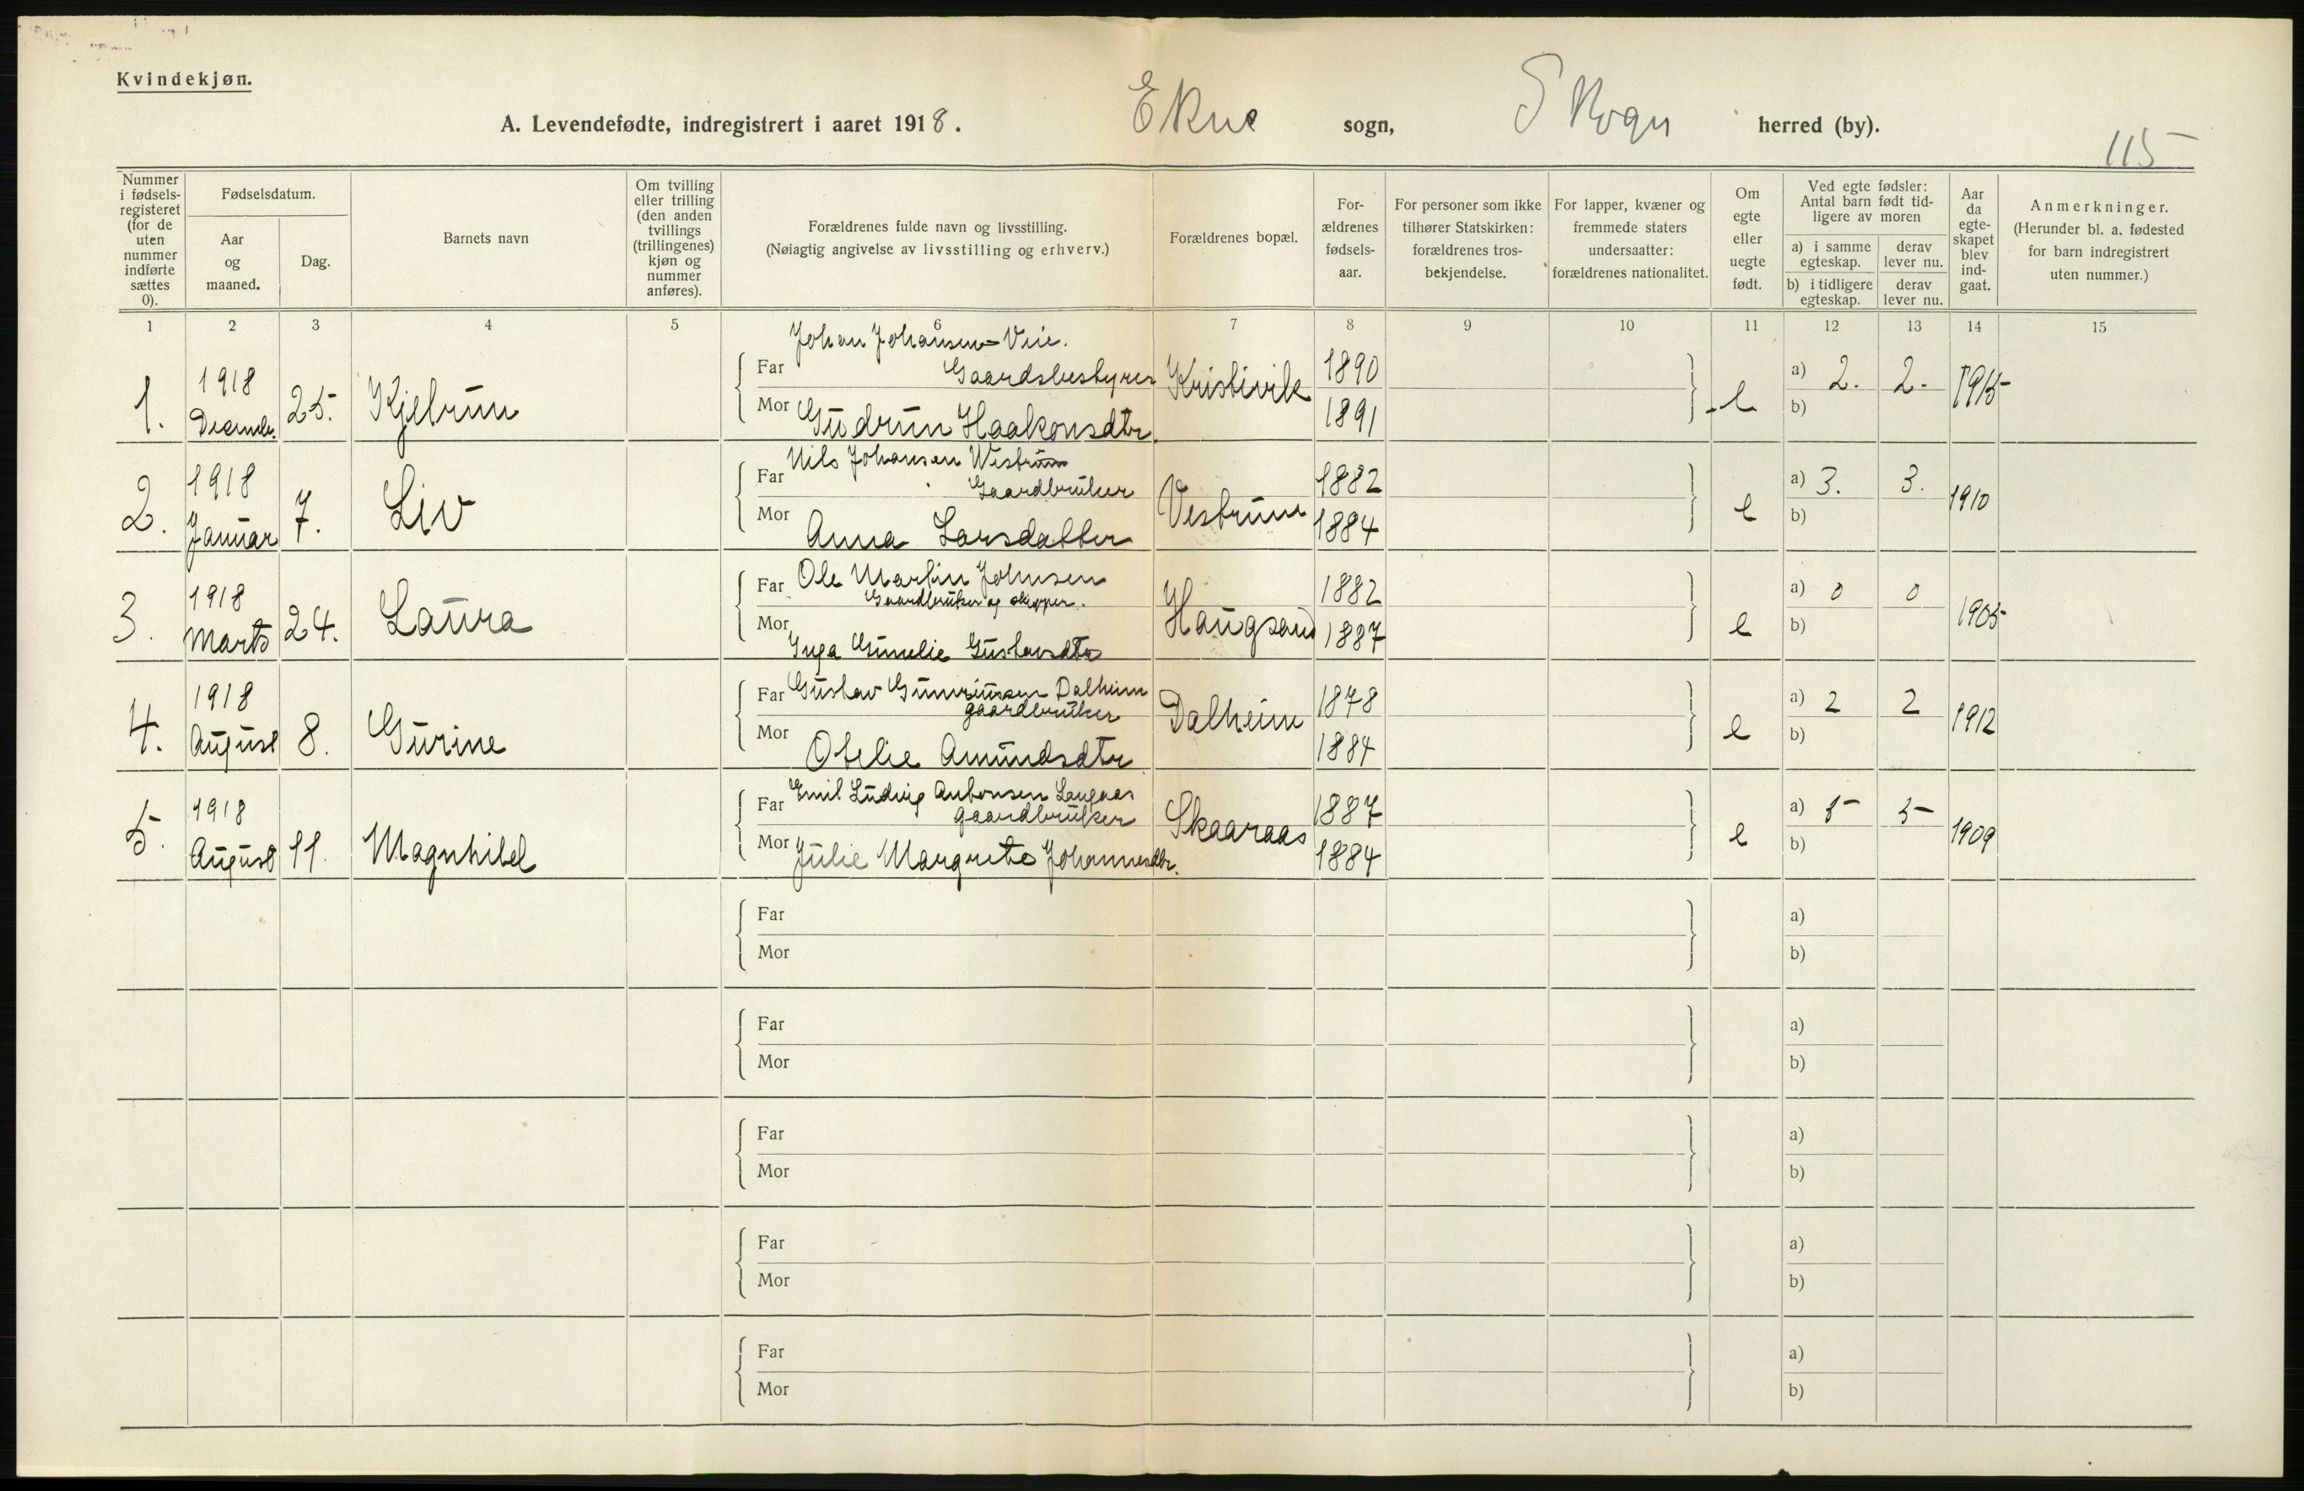 Kvindekjøn.
A. Levendefødte, indregistrert i aaret 1918. Ekne sogn, Skogn herred (by).
115
Nummer i fødsels-registeret (for de uten nummer indførte sættes 0).
Fødselsdatum.
Aar og maaned.
Dag.
Barnets navn
Om tvilling eller trilling (den anden tvillings (trillingenes) kjøn og nummer anføres).
Forældrenes fulde navn og livsstilling.
(Nøiagtig angivelse av livsstilling og erhverv.)
Forældrenes bopæl.
For-ældrenes fødsels-aar.
For personer som ikke tilhører Statskirken: forældrenes tros-bekjendelse.
For lapper, kvæner og fremmede staters undersaatter: forældrenes nationalitet.
Om egte eller uegte født.
Ved egte fødsler: Antal barn født tid-ligere av moren
a) i samme egteskap.
derav lever nu.
b) i tidligere egteskap.
derav lever nu.
Aar da egte-skapet blev ind-gaat.
Anmerkninger.
(Herunder bl. a. fødested for barn indregistrert uten nummer.)
1 2 3 4 5 6 7 8 9 10 11 12 13 14 15
1. 1918 Decemb. 25. Kjelrun
Far Johan Johansen-Vie. Gaardsbestyrer
Mor Gudrun Haakonsdtr.
Kristivik 1890 1891 e a) 2. 2. b) 1915
2. 1918 Januar 7. Liv
Far Nils Johansen Vestrum Gaardbruker
Mor Anna Larsdatter
Vestrum 1882 1884 e a) 3. 3. b) 1910
3. 1918 Marts 24. Laura
Far Ole Martin Johnsen Gaardbruker og skipper.
Mor Inga Gustavsdtr
Haugsand 1882 1887 e a) 0 0 b) 1905
4. 1918 August 8. Gurine
Far Gustav Dalheim gaardbruker
Mor Otelie Amundsdtr
Dalheim 1878 1884 e a) 2 2 b) 1912
5. 1918 August 11. Magnhild
Far Emil Ludvig Antonsen Langaas gaardbruker
Mor Julie Margrete Johannesdtr.
Skaaraas 1887 1884 e a) 5 5 b) 1909
Far a)
Mor b)
Far a)
Mor b)
Far a)
Mor b)
Far a)
Mor b)
Far a)
Mor b)